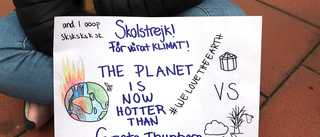 and I ooop
sksksksk sk
Skolstrejk!
för vårat KLIMAT!
THE PLANET
IS
NOW
HOTTER
THAN
Greta Thunberg
#WE LOVE THE EARTH
VS